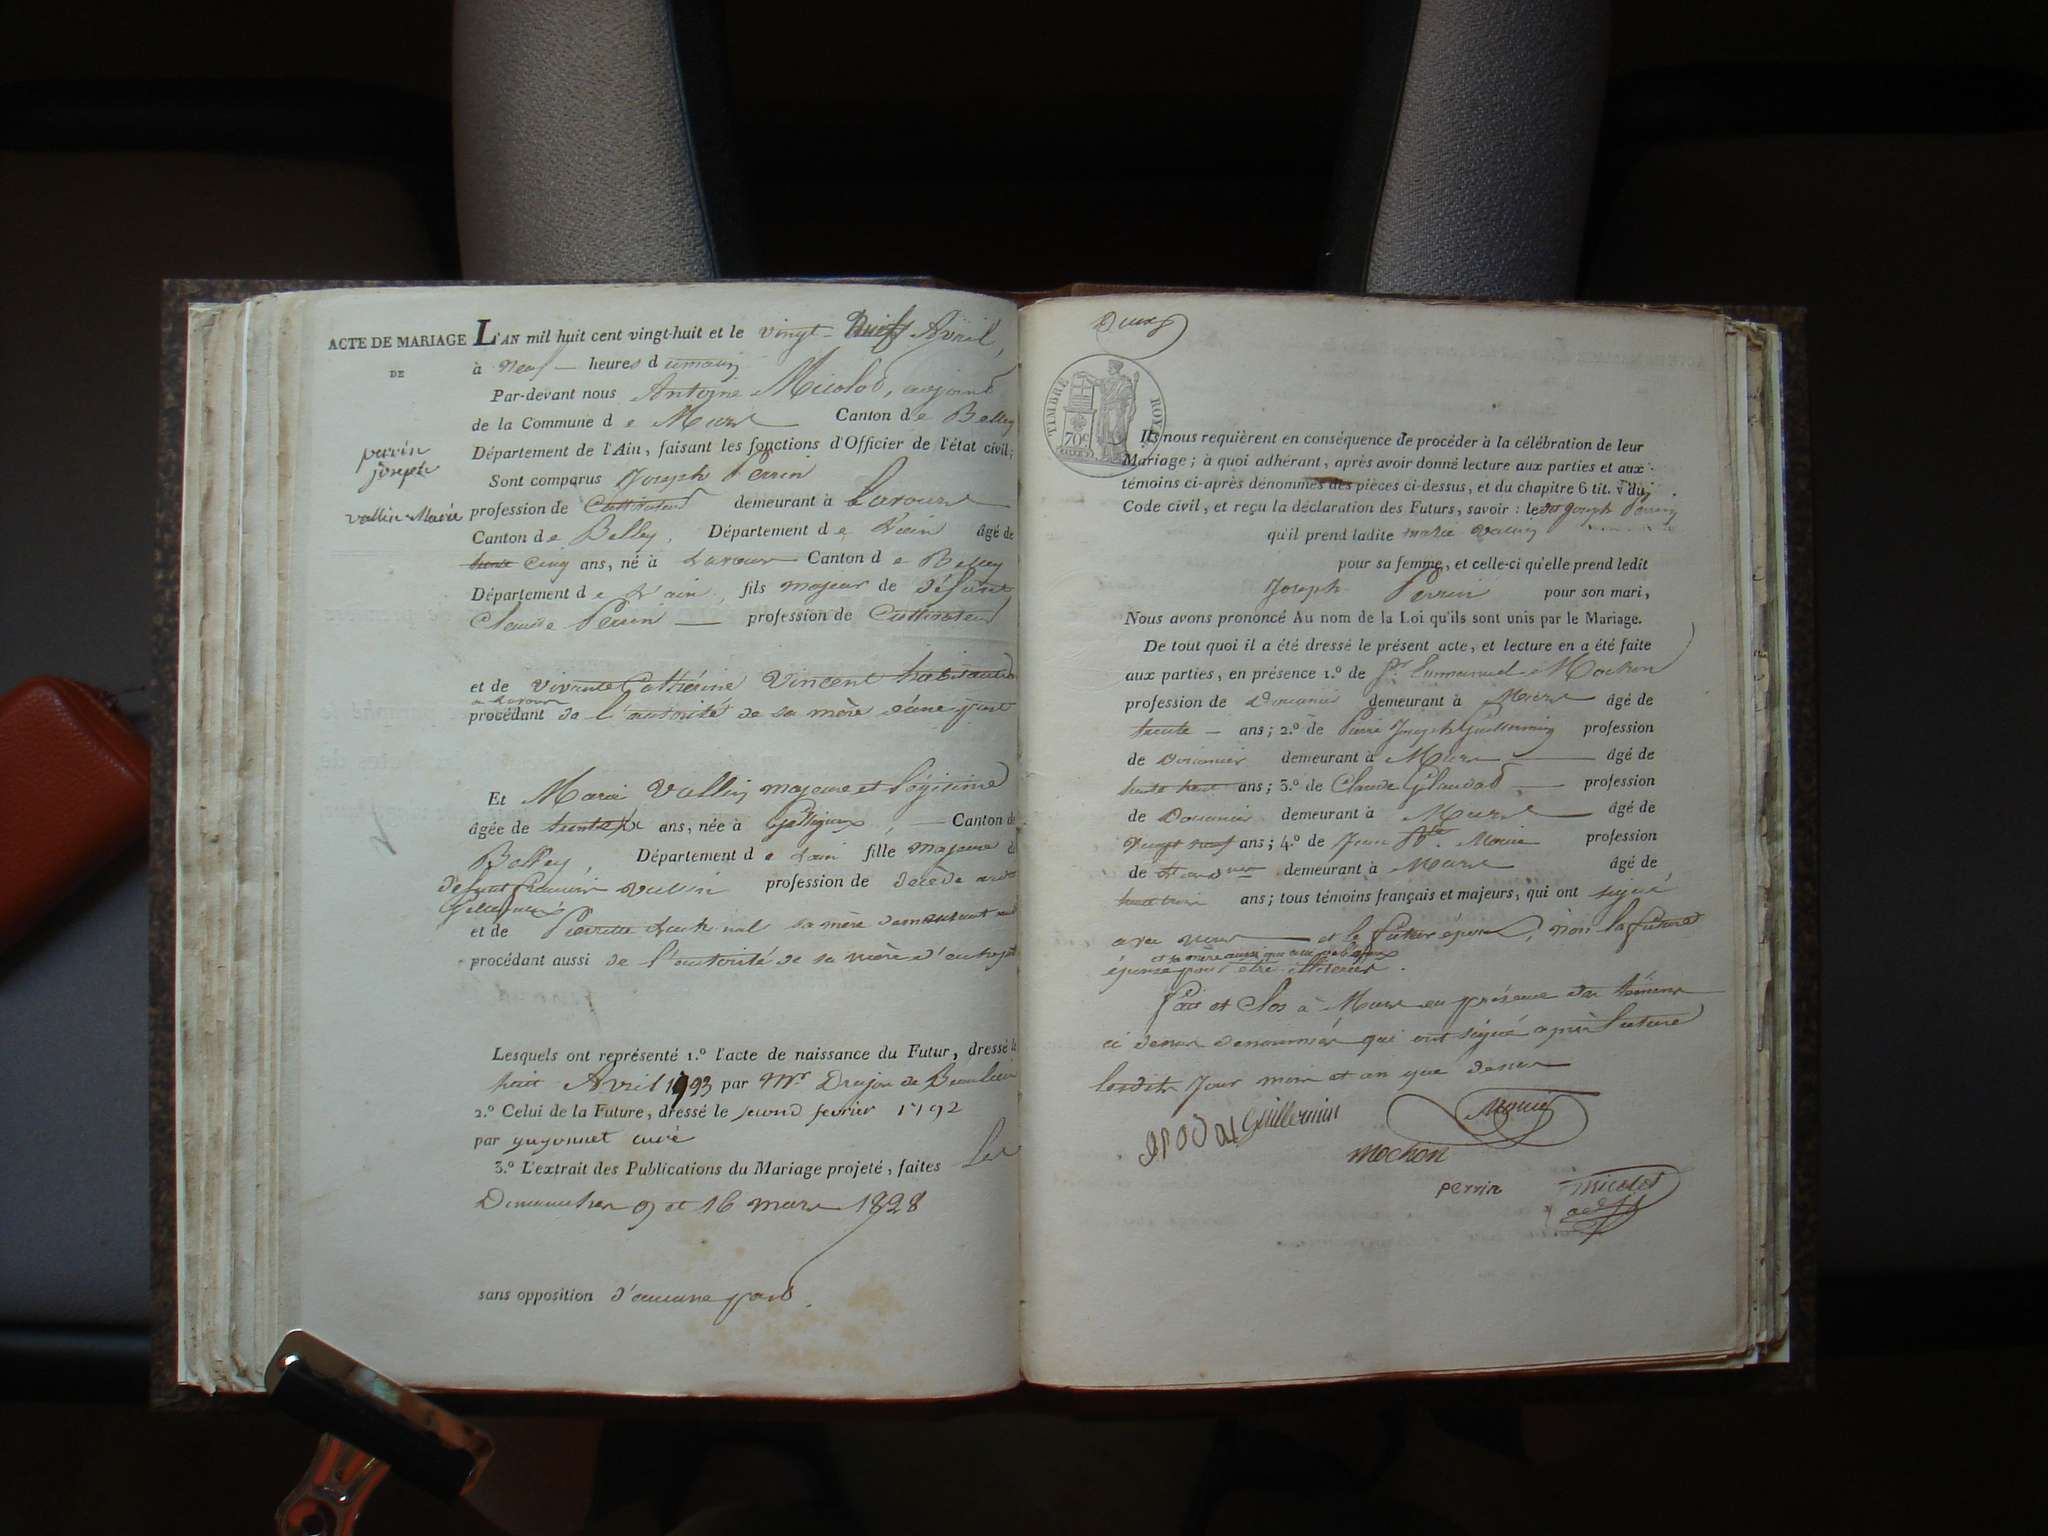 ACTE DE MARIAGE
DE
perrin
joseph
vallin Marie
L'AN mil huit cent vingt-huit et le vingt Avril,
à neuf heures du matin
Par-devant nous Antoine Micolod, adjoint
de la Commune de Murs Canton de Belley
Département de l'Ain, faisant les fonctions d'Officier de l'état civil;
Sont comparus Joseph Perrin
profession de Cultivateur demeurant à Lavours
Canton de Belley, Département de L'ain âgé de
trente cinq ans, né à Lavours Canton de Belley
Département de L'ain, fils majeur de défunt
Claude Perrin profession de Cultivateur
et de vivante Catherine Vincent habitante
a Lavours
procédant de l'autorité de sa mère d'une part
Et Marie Vallin majeure et légitime
âgée de trente six ans, née à Canton de
Belley, Département de Lain fille majeure de
defunt francois vallin profession de décédé
et de Pierrette sa mère demeurant
procédant aussi de l'autorité de sa mère d'autre part
Lesquels ont représenté 1.º l'acte de naissance du Futur, dressé le
huit Avril 1793 par Mr Drujon de Beaulieu
2.º Celui de la Future, dressé le second fevrier 1792
par guyonnet curé
3.º L'extrait des Publications du Mariage projeté, faites Les
Dimanches 9 et 16 mars 1828
sans opposition d'aucune part.
Deux
TIMBRE ROYAL
70c
Ils nous requièrent en conséquence de procéder à la célébration de leur
Mariage; à quoi adhérant, après avoir donné lecture aux parties et aux
témoins ci-après dénommés des pièces ci-dessus, et du chapitre 6 tit. v du
Code civil, et reçu la déclaration des Futurs, savoir: ledit Joseph Perrin
qu'il prend ladite marie vallin
pour sa femme, et celle-ci qu'elle prend ledit
Joseph Perrin pour son mari,
Nous avons prononcé Au nom de la Loi qu'ils sont unis par le Mariage.
De tout quoi il a été dressé le présent acte, et lecture en a été faite
aux parties, en présence 1.º de Emmanuel Mochon
profession de Douanier demeurant à Murs âgé de
trente ans; 2.º de Pierre Joseph Guillermin profession
de Douanier demeurant à Murs âgé de
trente huit ans; 3.º de Claude profession
de Douanier demeurant à Murs âgé de
vingt neuf ans; 4.º de Jean profession
de demeurant à Murs âgé de
trente ans; tous témoins français et majeurs, qui ont signé
avec nous et le futur époux, non la future
et sa mère aussi que celle de l'époux
épouse pour être illiterées.
Fait et Clos à Murs en présence des témoins
ci dessus denommés qui ont signé après lecture
lesdits Jour mois et an que dessus
Guillermin
Mochon
perrin
micolod
adjt